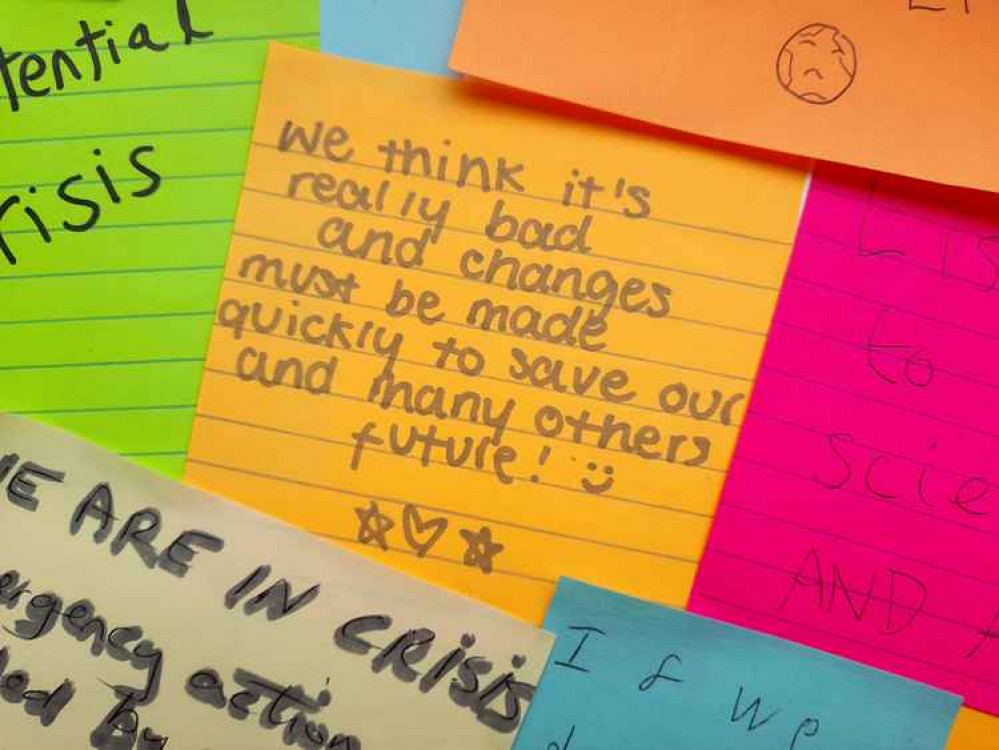 tential
risis
we think it's
really bad
and changes
must be made
quickly to save our
and many others
future! :)
to
AND
E ARE IN CRISIS
ergency action
ded by
I & we